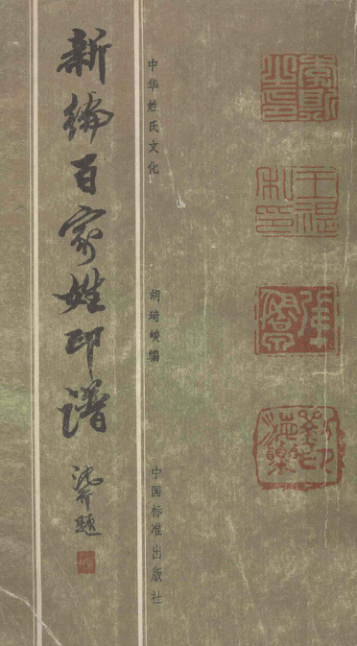 新编百家姓印谱
题
中华姓氏文化
胡琦峻编
中国标准出版社